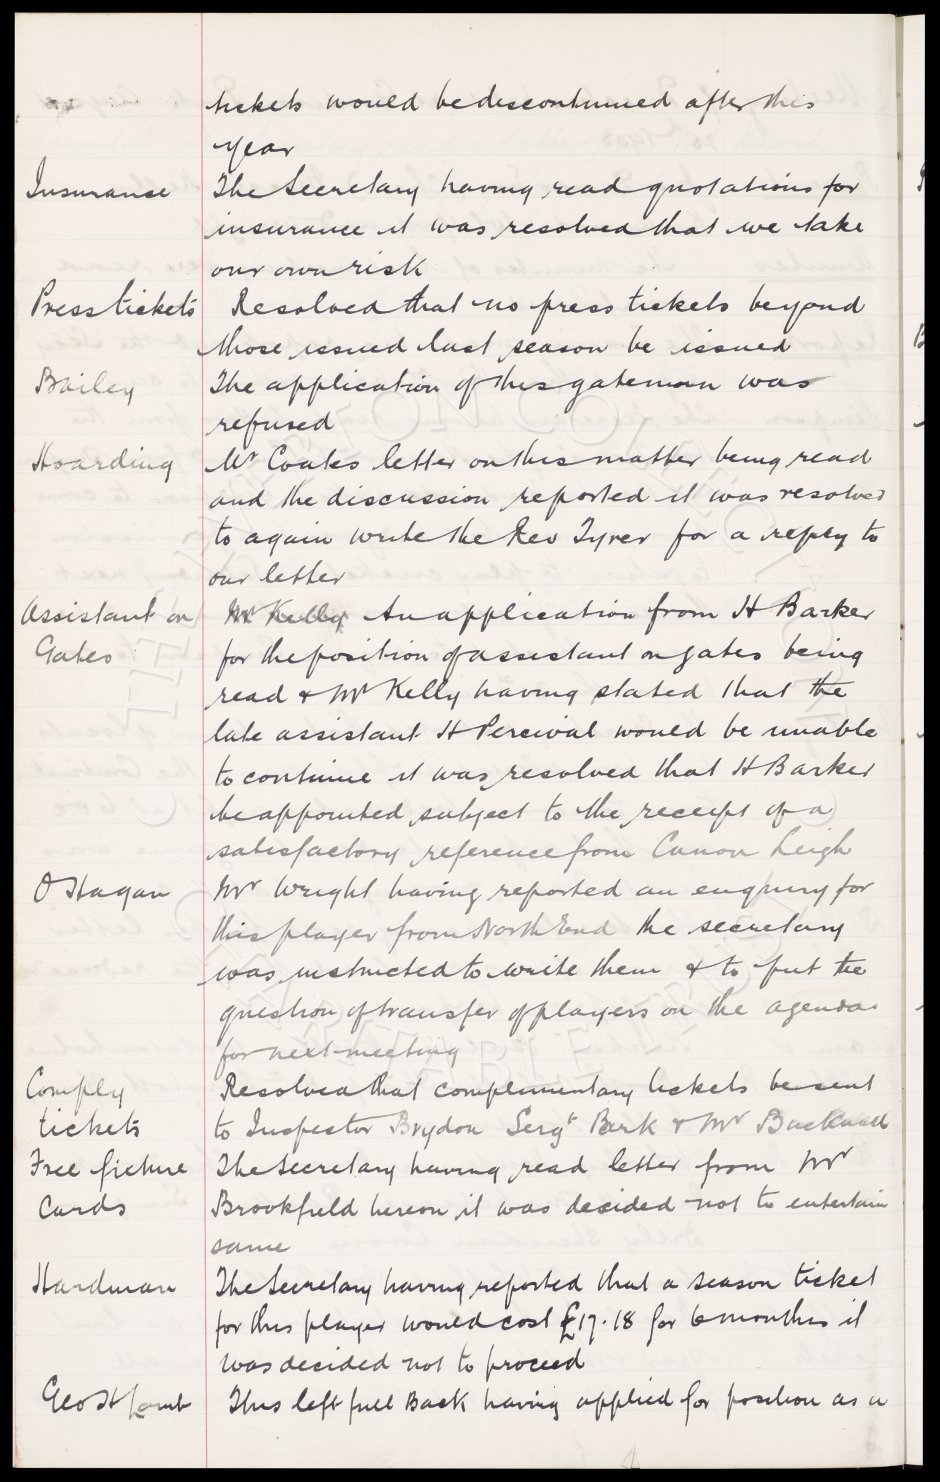 tickets would be discontinued after this
year
Insurance The Secretary having read quotations for
insurance it was resolved that we take
our own risk
Press tickets Resolved that no press tickets beyond
those issued last season be issued
Bailey The application of this gateman was
refused
Hoarding Mr Coates letter on this matter being read
and the discussion reported it was resolved
to again write the Rev Tyrer for a reply to
our letter
Assistant on Mr Kelly An application from H Barker
Gates for the position of assistant on gates being
read & Mr Kelly having stated that the
late assistant H Percival would be unable
to continue it was resolved that H Barker
be appointed subject to the receipt of a
satisfactory reference from Canon Leigh
O Hagan Mr Wright having reported an enquiry for
this player from North End the secretary
was instructed to write them & to put the
question of transfer of players on the agenda
for next meeting
Comply Resolved that complimentary tickets be sent
tickets to Inspector Brydon Sergt Berk & Mr
Free picture The Secretary having read letter from Mr
Cards Brookfield hereon it was decided not to entertain
same
Hardman The Secretary having reported that a season ticket
for this player would cost £17.18 for 6 months it
was decided not to proceed
Geo H Lamb This left full Back having applied for position as a
EVERTON COLLECTION